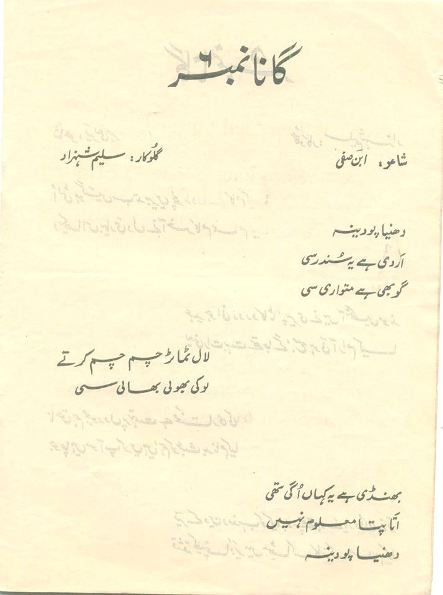 گانا نمبر ۶
شاعر: ابن صفی
گلوکار: سلیم شہزاد
دھنیا پودینہ
اَروی ہے یہ سُندر سی
گوبھی ہے متواری سی
لال ٹماٹر چم چم کرتے
لوکی بھولی بھالی سی
بھنڈی ہے یہ کہاں اُگی تھی
اتا پتا معلوم نہیں
دھنیا پودینہ